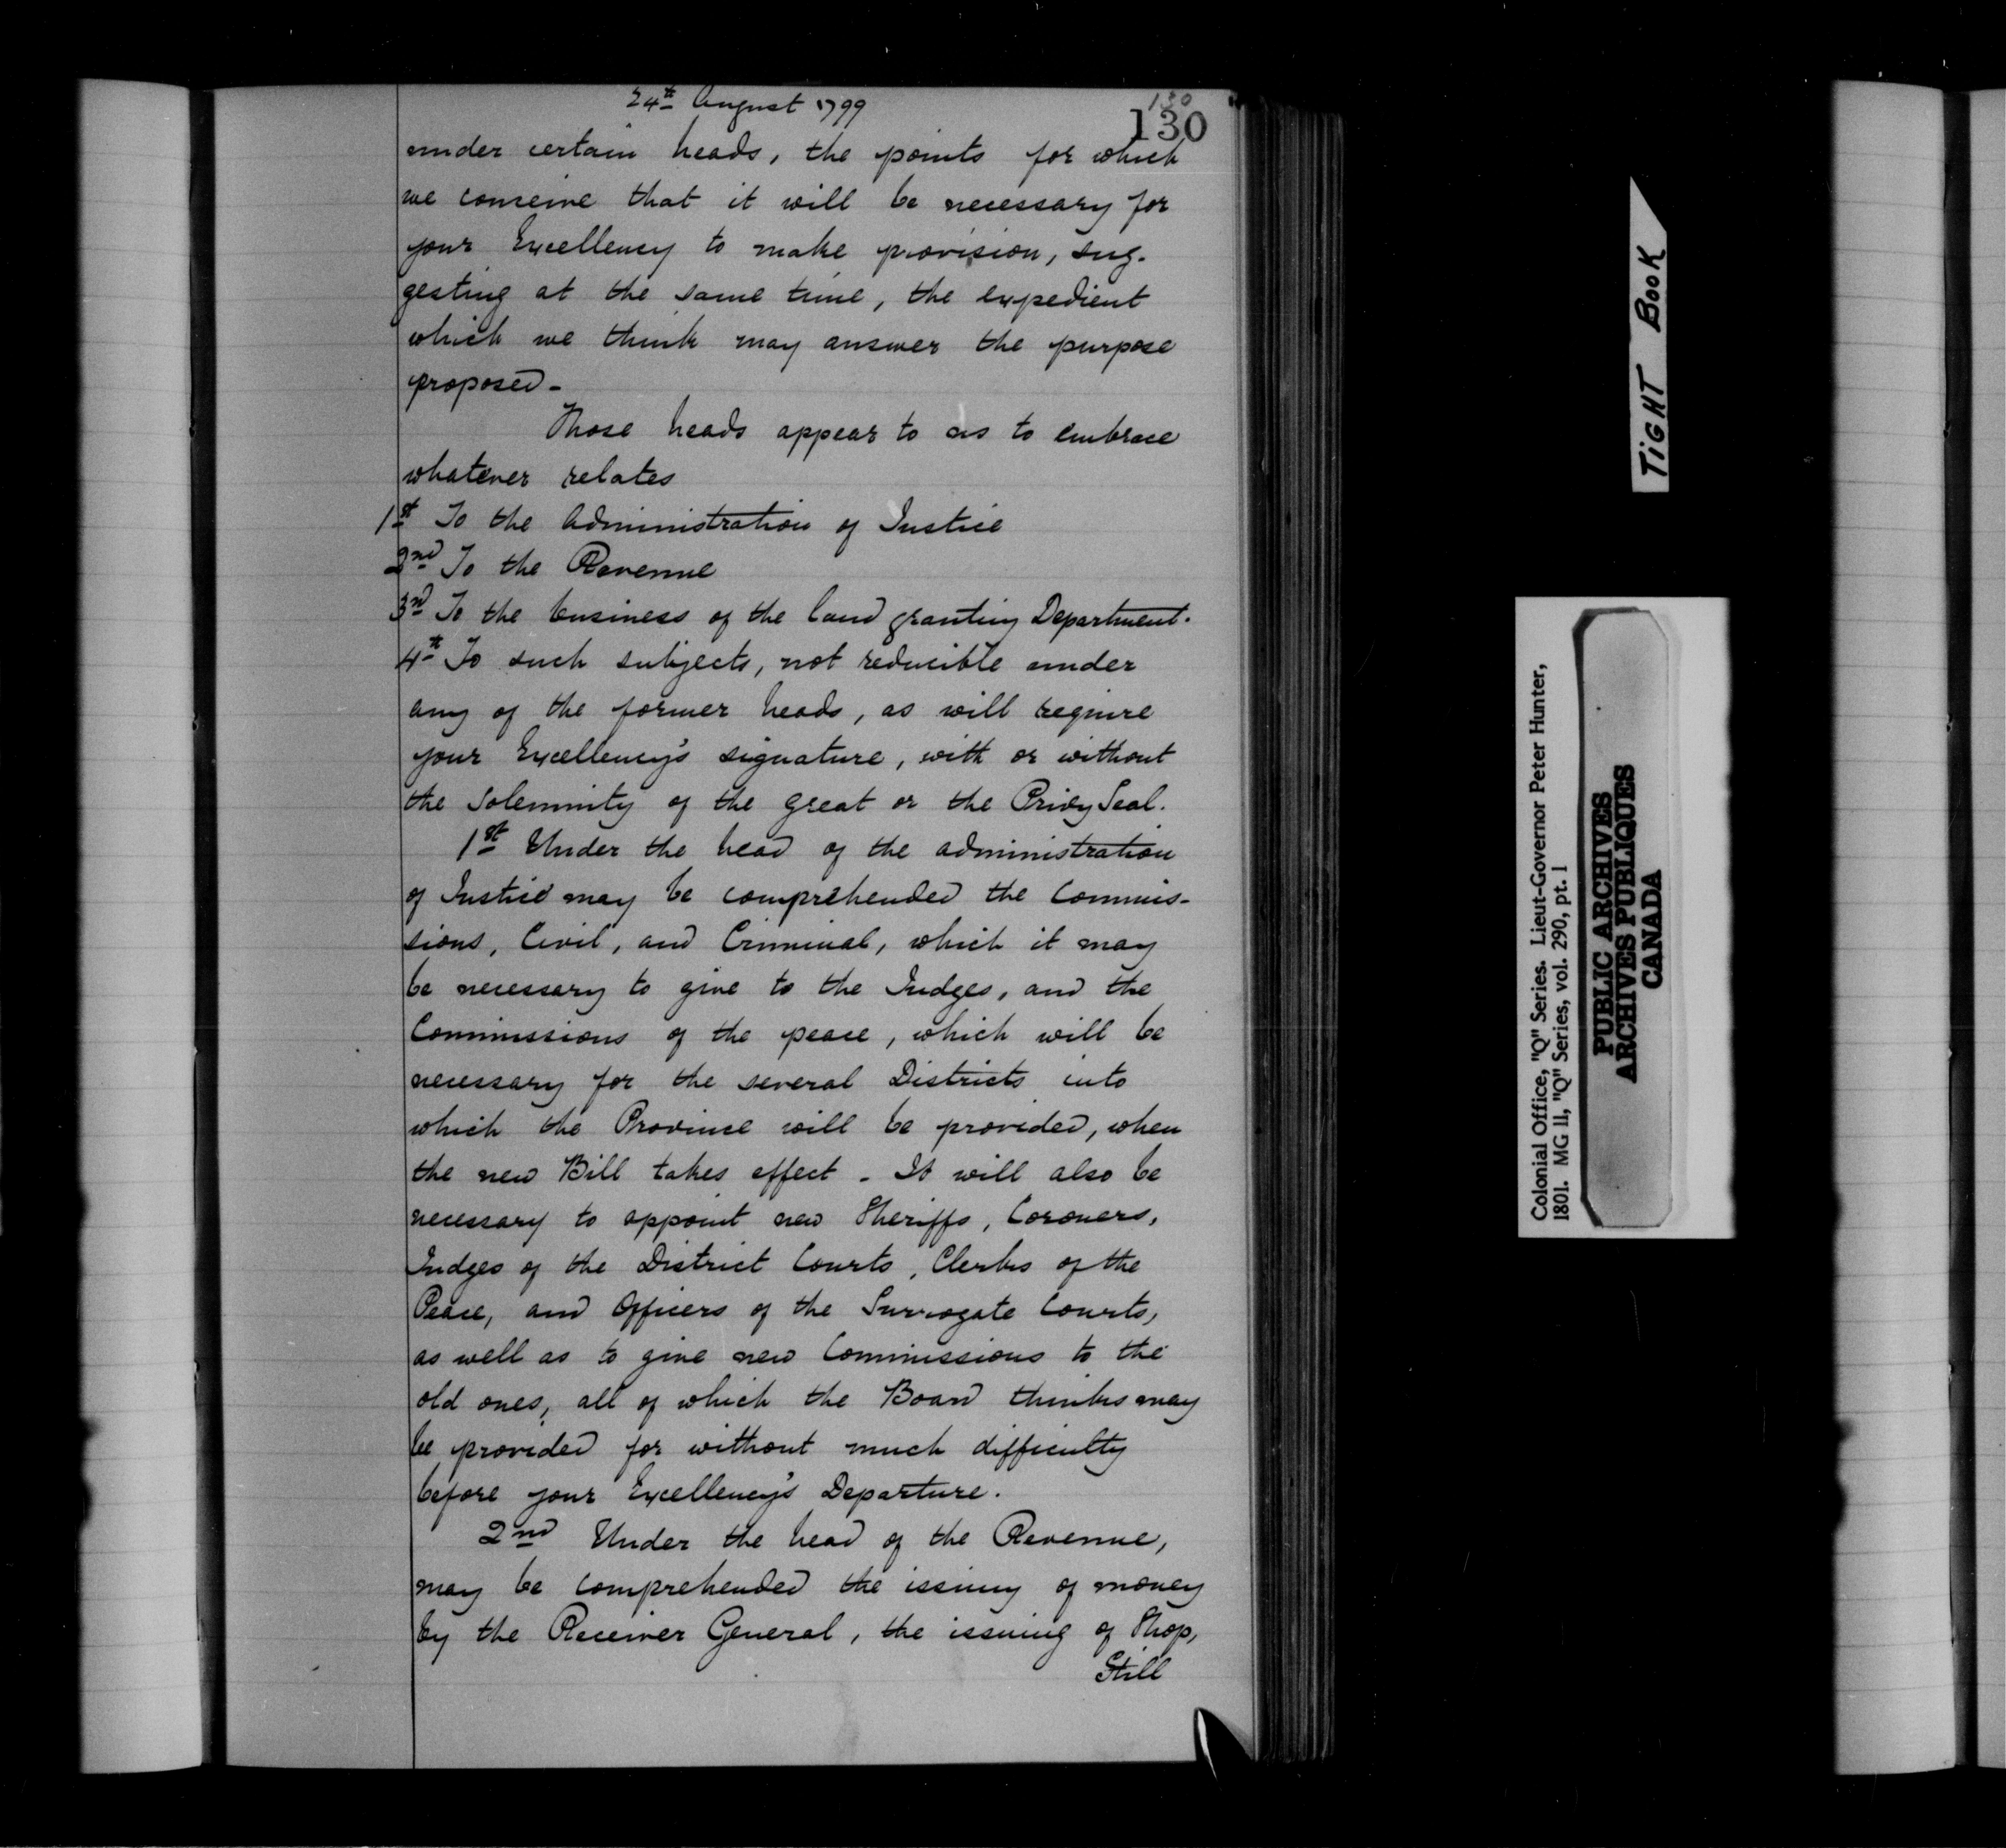 24th August 1799
130
130
under certain heads, the points for which
we conceive that it will be necessary for
your Excellency to make provision, sug-
gesting at the same time, the expedient
which we think may answer the purpose
proposed -
Those heads appear to us to embrace
whatever relates
1st To the Administration of Justice
2nd To the Revenue
3rd To the business of the land granting Department.
4th To such subjects, not reducible under
any of the former heads, as will require
your Excellency's signature, with or without
the solemnity of the great or the Privy Seal.
1st Under the head of the administration
of Justice may be comprehended the Commis-
sions, Civil, and Criminal, which it may
be necessary to give to the Judges, and the
Commissions of the peace, which will be
necessary for the several Districts into
which the Province will be provided, when
the new Bill takes effect - It will also be
necessary to appoint new Sheriffs, Coroners,
Judges of the District Courts, Clerks of the
Peace, and Officers of the Surrogate Courts,
as well as to give new Commissions to the
old ones, all of which the Board thinks may
be provided for without much difficulty
before your Excellency's Departure.
2nd Under the head of the Revenue,
may be comprehended the issuing of money
by the Receiver General, the issuing of Shop,
Still
TIGHT BOOK
Colonial Office, "Q" Series. Lieut-Governor Peter Hunter,
1801. MG 11, "Q" Series, vol. 290, pt. 1
PUBLIC ARCHIVES
ARCHIVES PUBLIQUES
CANADA